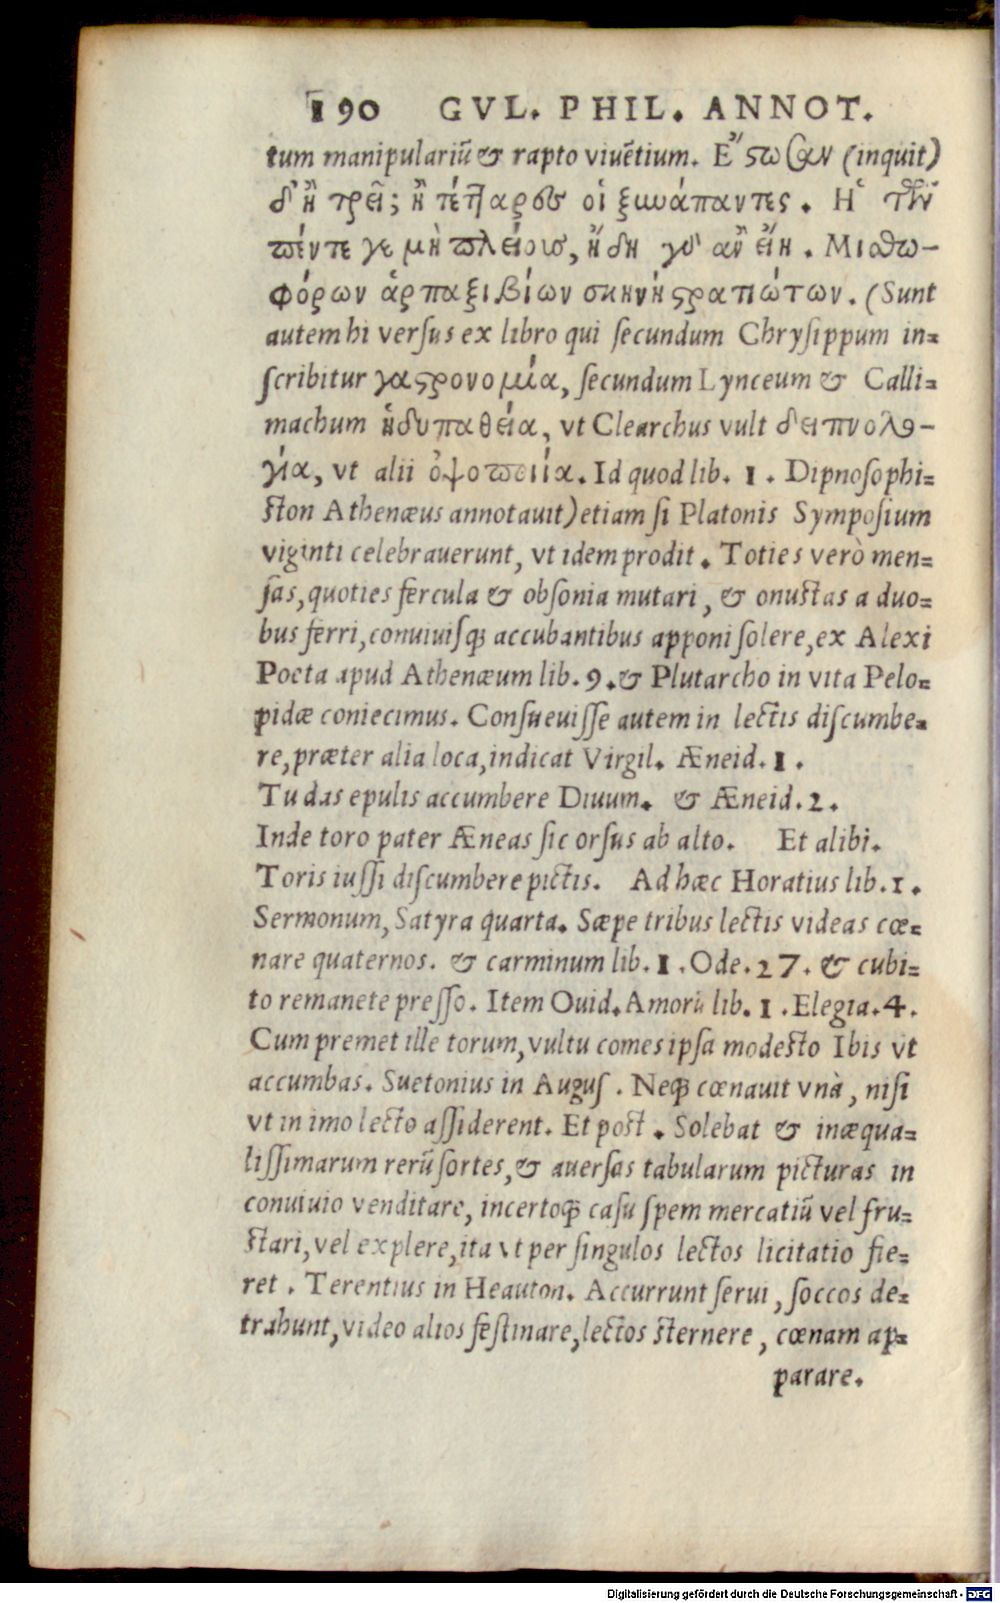 190 GVL. PHIL. ANNOT.
tum manipulariū & rapto viuētium. Ἔστωσαν (inquit)
δ' ἢ τρεῖς ἢ τέτταρες οἱ ξυνάπαντες. Ἢ τῶν
πέντε γε μὴ πλείους, ἤδη γδ ἂν εἴη. Μισθω-
φόρων ἁρπαξιβίων σκηνὴ στρατιώτων. (Sunt
autem hi versus ex libro qui secundum Chrysippum in=
scribitur γαστρονομία, secundum Lynceum & Calli=
machum ἡδυπαθεία, vt Clearchus vult δειπνολο-
γία, vt alii ὀψοποιία. Id quod lib. 1. Dipnosophi=
ston Athenæus annotauit) etiam si Platonis Symposium
viginti celebrauerunt, vt idem prodit. Toties verò men=
sas, quoties fercula & obsonia mutari, & onustas a duo=
bus ferri, conuiuisq; accubantibus apponi solere, ex Alexi
Poeta apud Athenæum lib. 9. & Plutarcho in vita Pelo=
pidæ coniecimus. Consueuisse autem in lectis discumbe=
re, præter alia loca, indicat Virgil. Æneid. 1.
Tu das epulis accumbere Diuum. & Æneid. 2.
Inde toro pater Æneas sic orsus ab alto. Et alibi.
Toris iussi discumbere pictis. Ad hæc Horatius lib. 1.
Sermonum, Satyra quarta. Sæpe tribus lectis videas cœ=
nare quaternos. & carminum lib. 1. Ode. 27. & cubi=
to remanete presso. Item Ouid. Amorū lib. 1. Elegia. 4.
Cum premet ille torum, vultu comes ipsa modesto Ibis vt
accumbas. Suetonius in Augus. Neq; cœnauit vnà, nisi
vt in imo lecto assiderent. Et post. Solebat & inæqua=
lissimarum rerū sortes, & auersas tabularum picturas in
conuiuio venditare, incertoq; casu spem mercatiū vel fru=
stari, vel explere, ita vt per singulos lectos licitatio fie=
ret. Terentius in Heauton. Accurrunt serui, soccos de=
trahunt, video alios festinare, lectos sternere, cœnam ap=
parare.
Digitalisierung gefördert durch die Deutsche Forschungsgemeinschaft - DFG